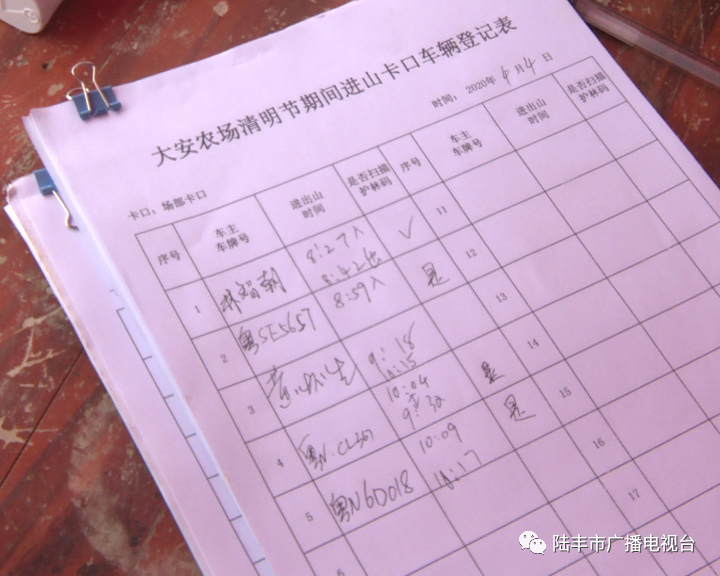 大安农场清明节期间进山卡口车辆登记表
时间：2020年4月4日
卡口：场部卡口
序号 车主车牌号 进出山时间 是否扫描护林码 序号 车主车牌号 进出山时间 是否扫描护林码
1 林智朝 8:27入 8:42出 √ 11
2 粤SE5657 8:59入 是 12
3 9:18 13
4 10:04 是 14
5 粤N6D018 10:09 是 15
16
17
陆丰市广播电视台